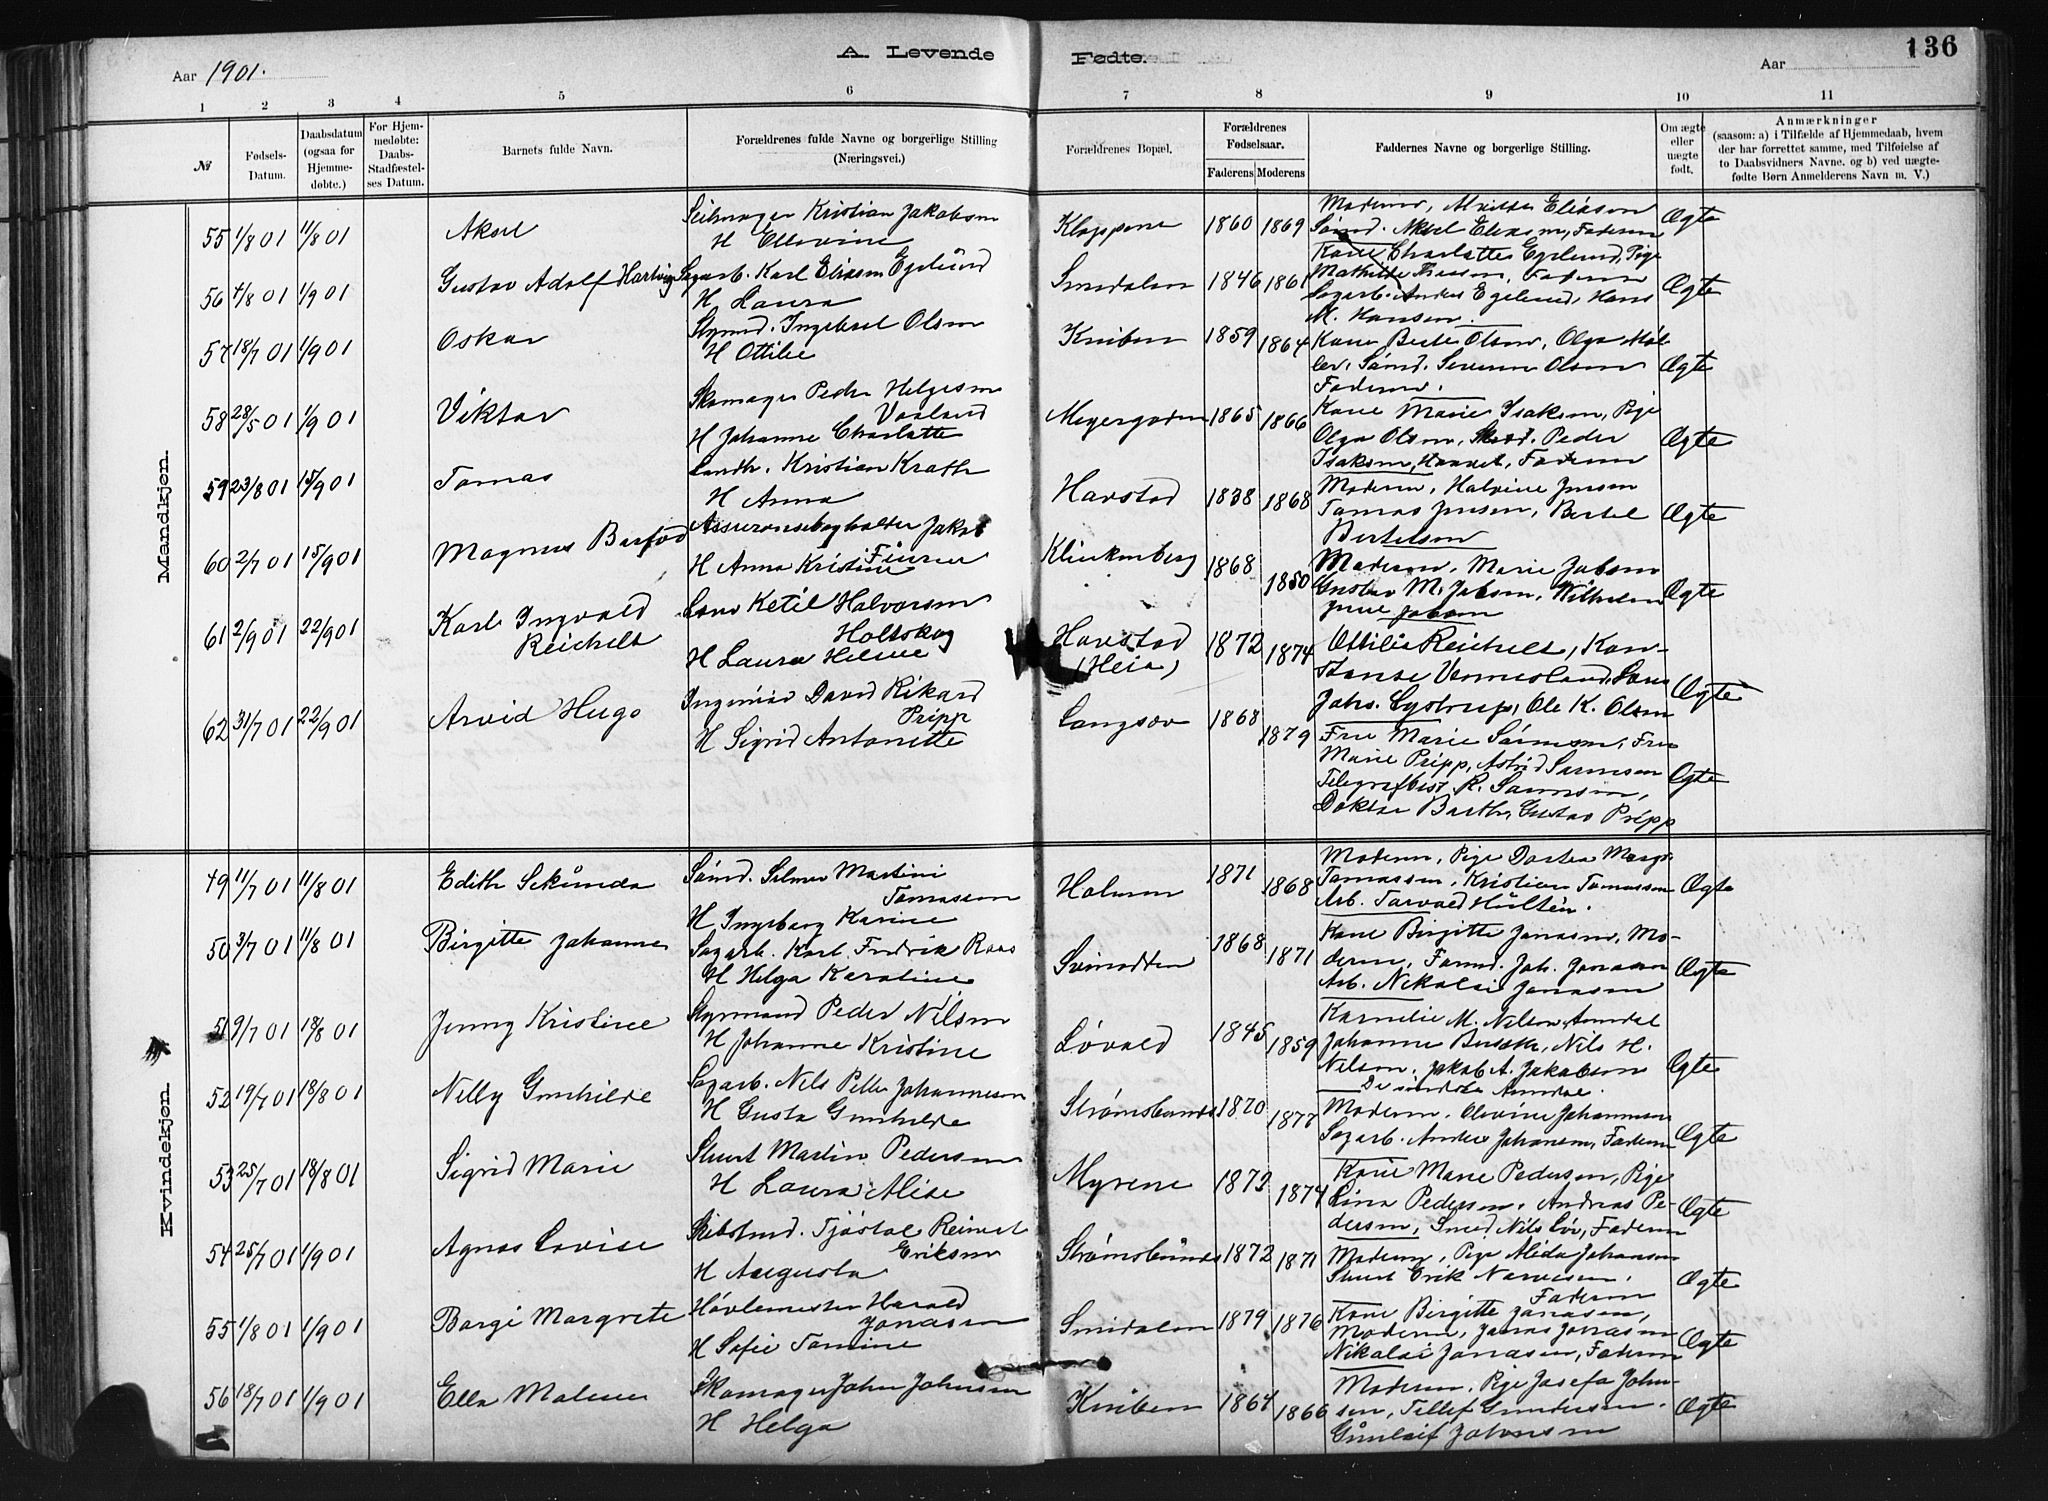 A. Levende Fødte.
136
Aar 1901.
Aar
1 2 3 4 5 6 7 8 9 10 11
№
Fødsels-
Datum.
Daabsdatum
(ogsaa for
Hjemme-
døbte.)
For Hjem-
medøbte:
Daabs-
Stadfæstel-
ses Datum.
Barnets fulde Navn.
Forældrenes fulde Navne og borgerlige Stilling
(Næringsvei.)
Forældrenes Bopæl.
Forældrenes
Fødselsaar.
Faderens Moderens
Faddernes Navne og borgerlige Stilling.
Om ægte
eller
uægte
født.
Anmærkninger
(saasom: a) i Tilfælde af Hjemmedaab, hvem
der har forrettet samme, med Tilføielse af
to Daabsvidners Navne. og b) ved uægte-
fødte Børn Anmelderens Navn m. V.)
Mandkjøn.
55 1/8 01 11/8 01 Aksel
Seilmager Kristian Jakobsen
H Ellevine
Klappene 1860 1869
Sømd. Aksel Eliasen, Faderen
Ægte
56 4/8 01 1/9 01 Gustav Adolf Hartvig
Sagarb. Karl Eliasen Egelund
H Laura
Smedalen 1846 1861
Kone Charlotte Egelund, Pige
Sagarb. Anders Egelund, Hans
M. Hansen.
Ægte
57 18/7 01 1/9 01 Oskar
Styrmd. Ingebret Olsen
H Ottilie
Kniben 1859 1864
Kone Berte Olsen, Olga Møl-
ler, Sømd. Severin Olsen
Faderen.
Ægte
58 28/5 01 1/9 01 Viktor
Skomager Peder Helgesen
Vaaland
H Johanne Charlotte
Meyergaden 1865 1866
Kone Marie Isaksen, Pige
Olga Olsen, Peder
Isaksen, Faderen
Ægte
59 23/8 01 15/9 01 Tomas
Landh. Kristian Krath
H Anna
Havstad 1838 1868
Moderen, Halvine Jensen
Tomas Jensen, Bertel
Bertelsen
Ægte
60 2/7 01 15/9 01 Magnus Barfod
Assuransebogholder Jakob
H Anna Kristine
Klinkenberg 1868 1850
Moderen, Marie Jobsen
Gustav M. Jobsen, Vilhelm
Ægte
61 2/9 01 22/9 01 Karl Ingvald
Reichelt
Lods Ketil Halvorsen
Holtskog
H Laura Helene
Havstad
(Heia)
1872 1874
Ottilie Reichelt, Kon-
stanse Vermesland,
Johs. Lystrup, Ole K. Olsen
Ægte
62 31/7 01 22/9 01 Arvid Hugo
Ingeniør David Rikard
Pripp
H Sigrid Antonette
Langsæv 1868 1879
Fru Marie Sørensen, Fru
Marie Pripp, Astrid Sørensen
Telegrafbest. R. Sørensen,
Doktor Barth, Gustav Pripp
Ægte
Kvindekjøn.
49 11/7 01 11/8 01 Edith Sekunda
Sømd. Selmer Martini
Tomassen
H Ingeborg Karine
Holmen 1871 1868
Moderen, Pige Dortea Margr.
Tomassen, Kristian Tomassen
Arb. Torvald Hulten.
Ægte
50 3/7 01 11/8 01 Birgitte Johanne
Sagarb. Karl Fredrik Roas
H Helga Karoline
Svinodden 1868 1871
Kone Birgitte Jonasen, Mo-
deren, Formd. Joh. Jonasen
Arb. Nikolai Jonasen
Ægte
51 9/7 01 18/8 01 Jenny Kristine
Styrmand Peder Nilsen
H Johanne Kristine
Løvold 1845 1859
Kornelie M. Nilsen, Arendal
Johanne Nils H.
Nilsen, Jakob A. Jakobsen
De sidste Arendal.
Ægte
52 19/7 01 18/8 01 Nelly Gunhilde
Sagarb. Nils Petter Johannesen
H Gusta Gunhilde
Strømsbunes 1870 1877
Moderen, Olevine Johannesen
Sagarb. Anders Johansen, Faderen
Ægte
53 25/7 01 18/8 01 Sigrid Marie
Stuert Martin Pedersen
H Laura Alise
Myrene 1872 1874
Kone Marie Pedersen, Pige
Lina Pedersen, Andreas Pe-
dersen, Smed Nils Løv, Faderen
Ægte
54 25/7 01 1/9 01 Agnes Lovise
Skibstmd. Tjøstol Reinert
Eriksen
H Augusta
Strømsbunes 1872 1871
Moderen, Pige Alida Johansen
Stuert Erik Narvesen.
Faderen
Ægte
55 1/8 01 1/9 01 Borgi Margrete
Høvlemester Harald
Jonasen
H Sofie Tomine
Smedalen 1879 1876
Kone Birgitte Jonasen,
Moderen, Jonas Jonasen
Nikolai Jonasen, Faderen
Ægte
56 18/7 01 1/9 01 Ella Malene
Skomager John Johnsen
H Helga
Kniben 1864 1866
Moderen, Pige Josefa John-
sen, Tellef Gundersen.
Gunleif Johnsen
Ægte